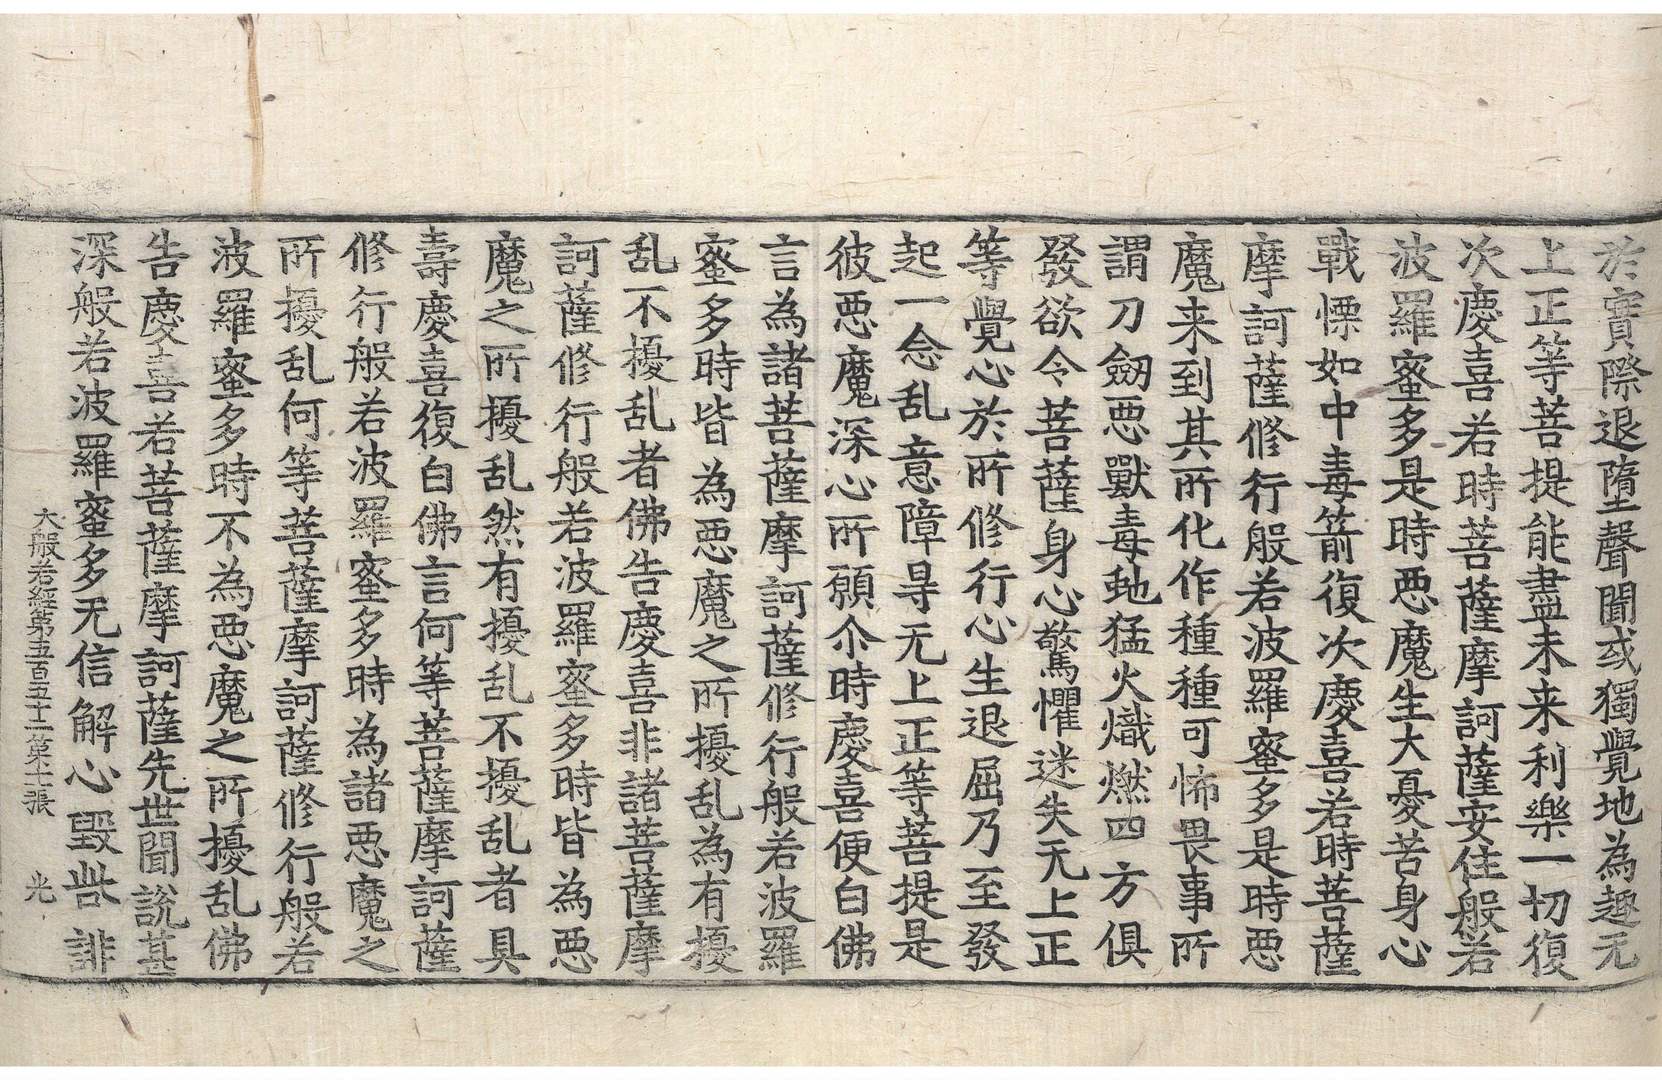 於實際退墮聲聞或獨覺地為趣无
上正等菩提能盡未来利樂一切復
次慶喜若時菩薩摩訶薩安住般若
波羅蜜多是時惡魔生大憂苦身心
戰慄如中毒箭復次慶喜若時菩薩
摩訶薩修行般若波羅蜜多是時惡
魔来到其所化作種種可怖畏事所
謂刀劔惡獸毒虵猛火熾燃四方俱
發欲令菩薩身心驚懼迷失无上正
等覺心於所修行心生退屈乃至發
起一念乱意障㝵无上正等菩提是
彼惡魔深心所願尒時慶喜便白佛
言為諸菩薩摩訶薩修行般若波羅
蜜多時皆為惡魔之所擾乱為有擾
乱不擾乱者佛告慶喜非諸菩薩摩
訶薩修行般若波羅蜜多時皆為惡
魔之所擾乱然有擾乱不擾乱者具
壽慶喜復白佛言何等菩薩摩訶薩
修行般若波羅蜜多時為諸惡魔之
所擾乱何等菩薩摩訶薩修行般若
波羅蜜多時不為惡魔之所擾乱佛
告慶喜若菩薩摩訶薩先世聞說甚
深般若波羅蜜多无信解心毀呰誹
大般若經第五百五十二第十二張 光